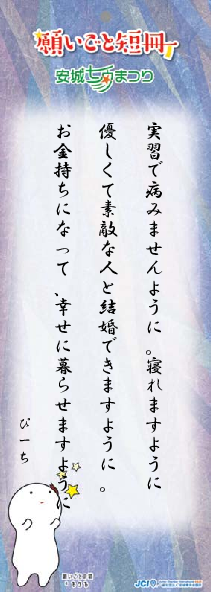 願いごと短冊
安城七夕まつり
実習で病みませんように。寝れますように
優しくて素敵な人と結婚できますように。
お金持ちになって、幸せに暮らせますように
ぴーち
願いごと短冊
JCI